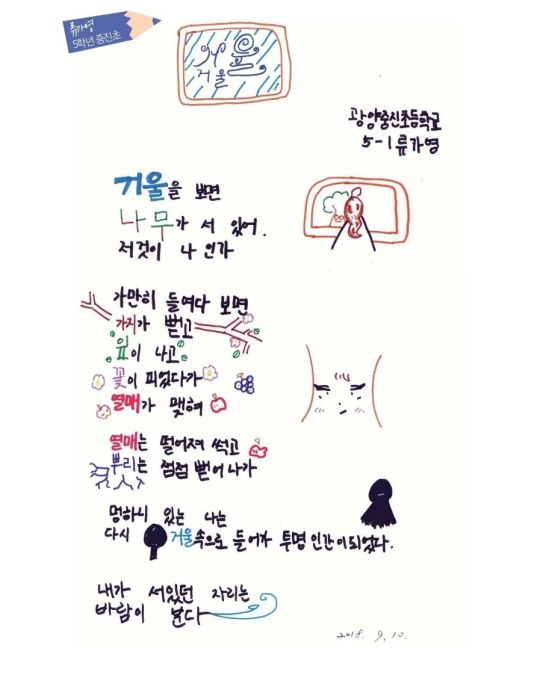 류가영
5학년 중진초
거울
거울
광양중진초등학교
5-1 류가영
거울을 보면
나무가 서 있어.
저것이 나 인가
가만히 들여다 보면
가지가 뻗고
잎이 나고
꽃이 피었다가
열매가 맺혀
열매는 떨어져 썩고
뿌리는 점점 뻗어나가
멍하니 있는 나는
다시 거울속으로 들어가 투명 인간이 되었다.
내가 서있던 자리는
바람이 분다
2018. 9. 10.